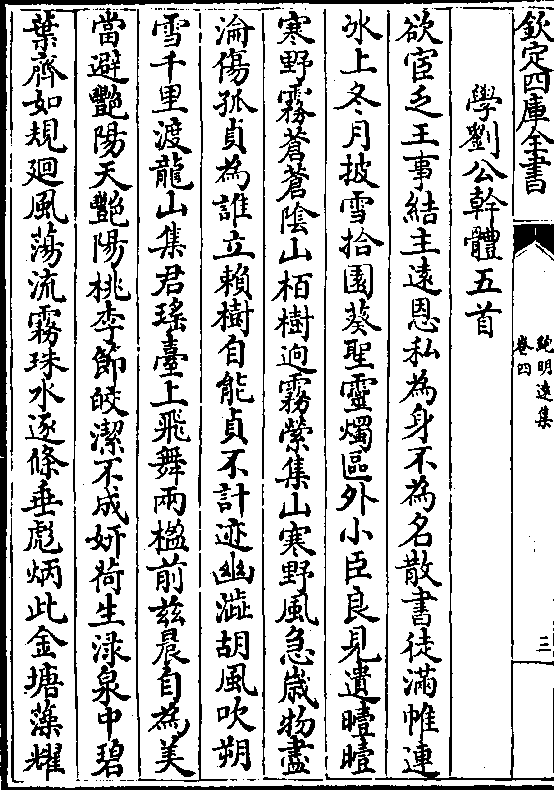 欽定四庫全書
鮑明遠集
卷四
三
學劉公幹體五首
欲宦乏王事結主逺恩私為身不為名散書徒滿帷連
氷上冬月披雪拾園葵聖靈燭區外小臣良見遺曀曀
寒野霧蒼蒼陰山栢樹逈霧縈集山寒野風急嵗物盡
淪傷孤貞為誰立賴樹自能貞不計迹幽澁胡風吹朔
雪千里渡龍山集君瑤臺上飛舞兩楹前兹晨自為美
當避艷陽天艷陽桃李節皎潔不成妍荷生渌泉中碧
葉齊如規廻風蕩流霧珠水逐條垂彪炳此金塘藻耀